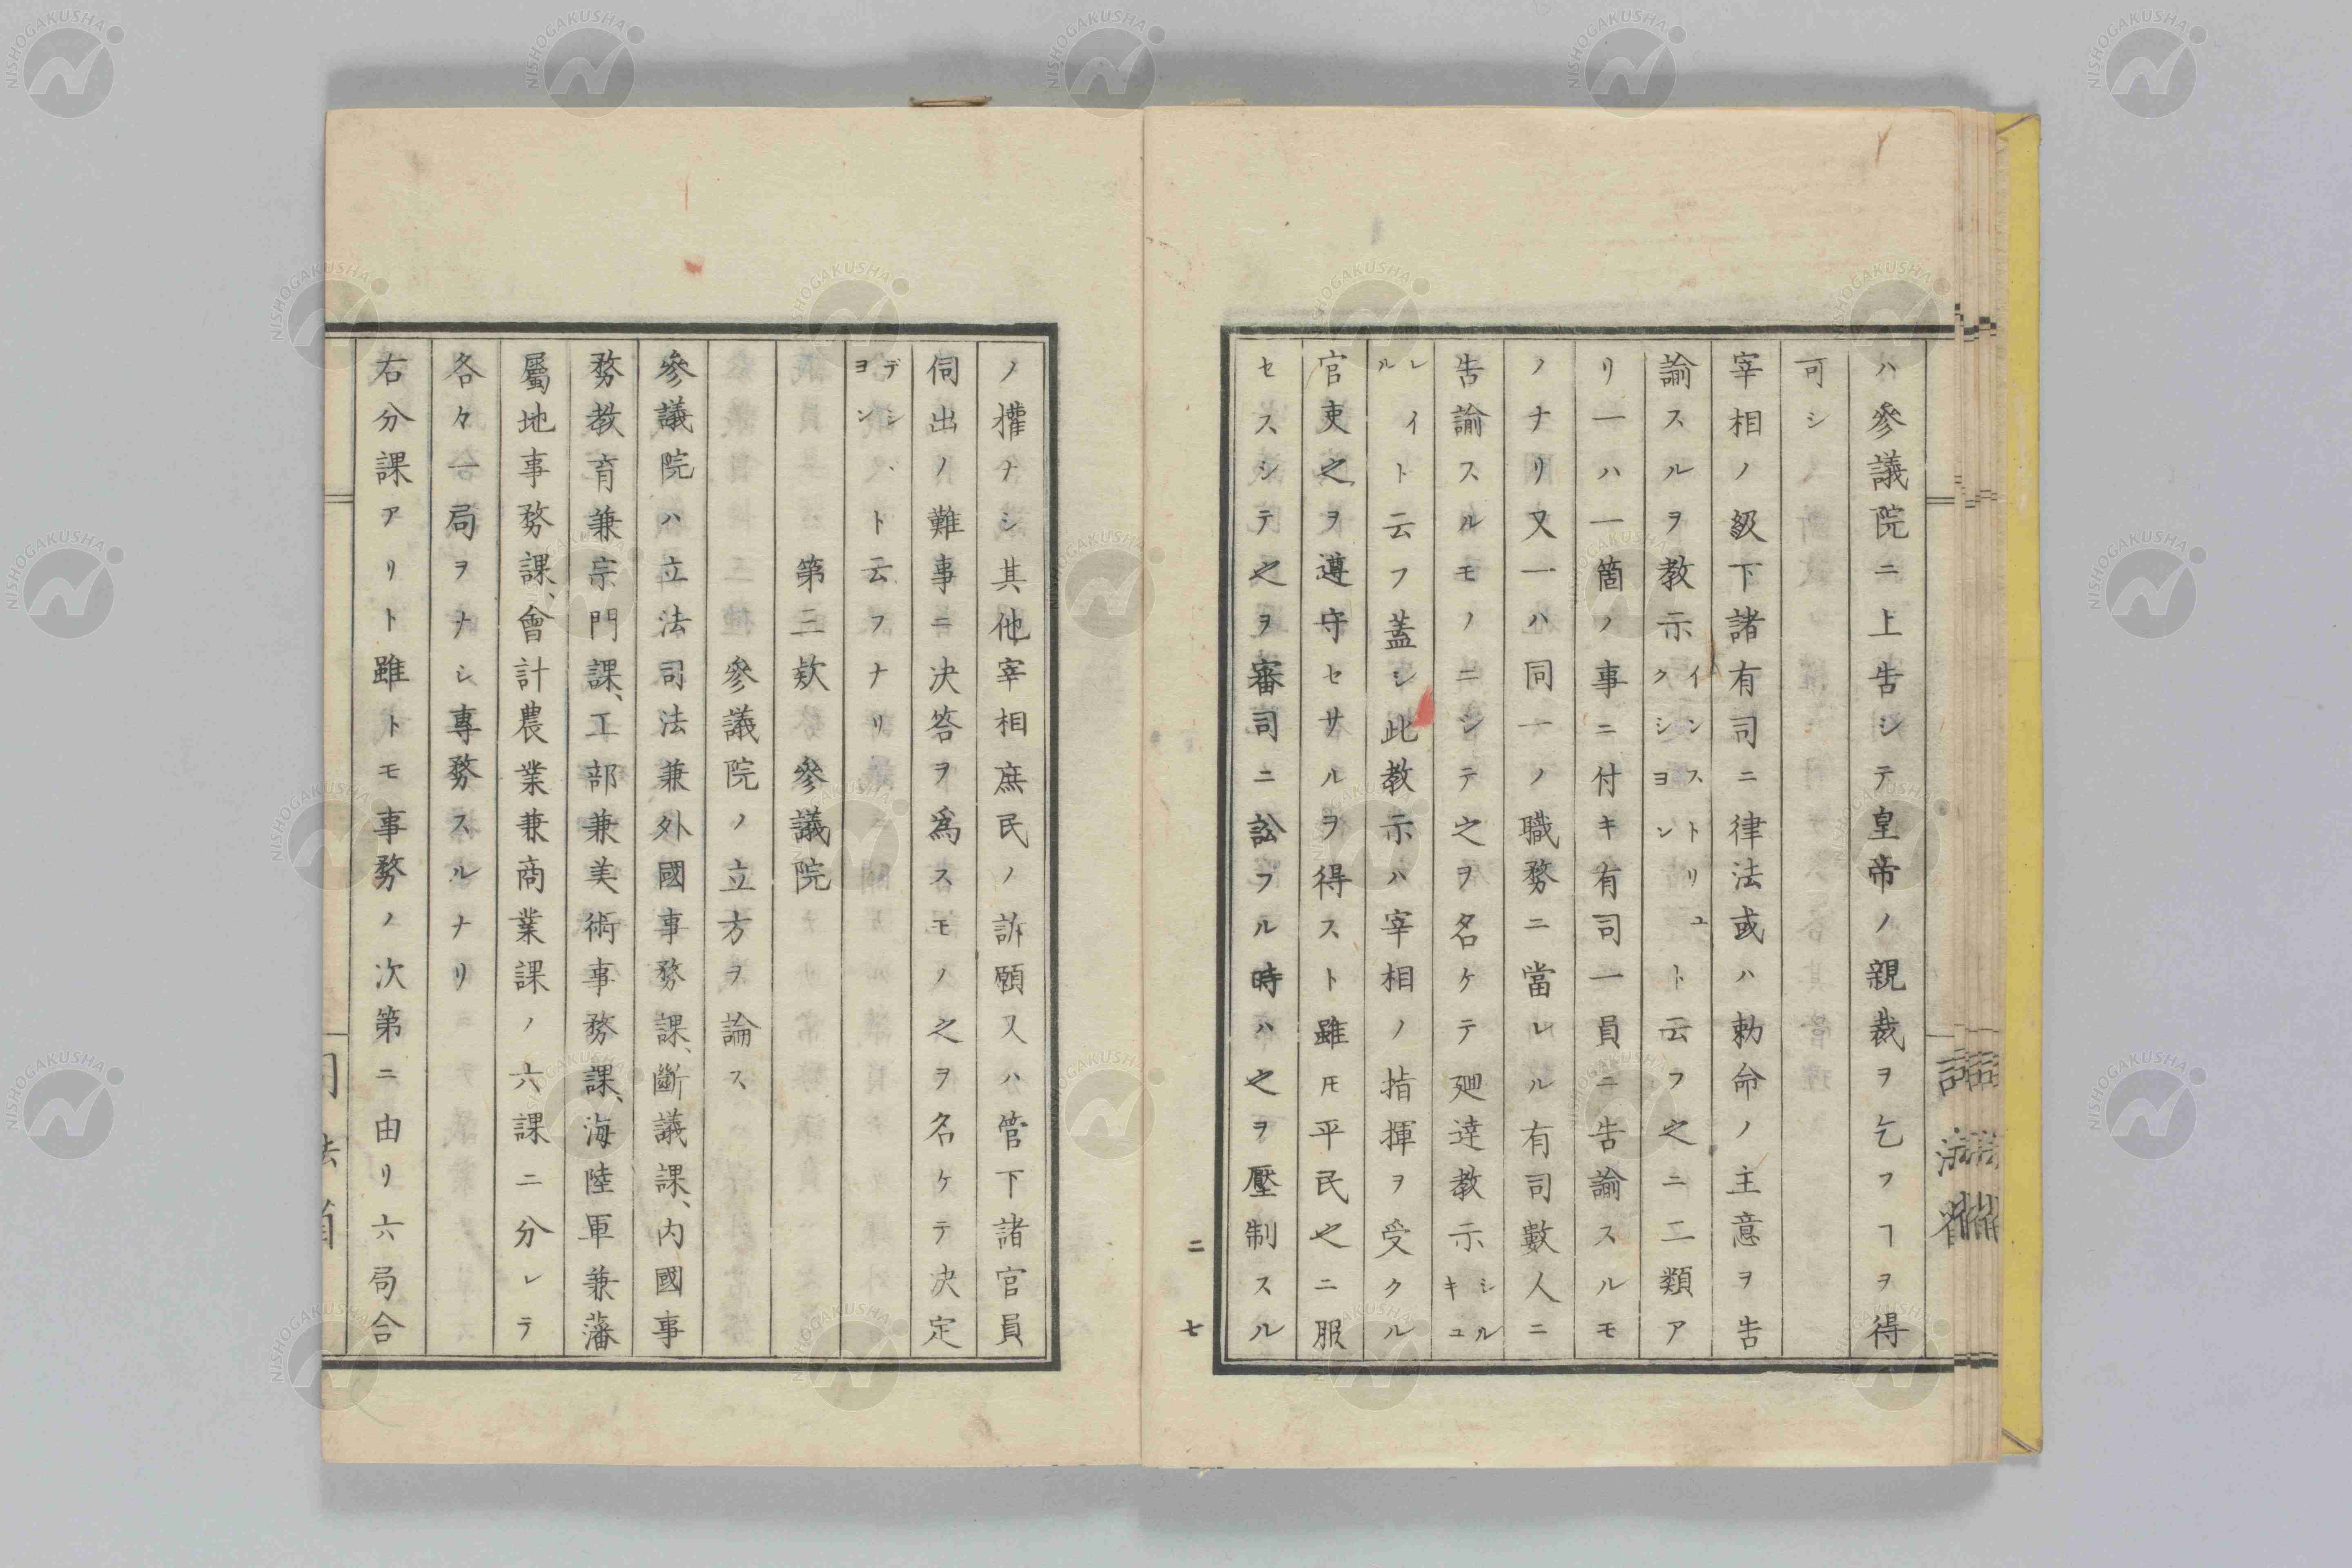 ハ參議院ニ上告シテ皇帝ノ親裁ヲ乞フヿヲ得
可シ
宰相ノ級下諸有司ニ律法或ハ勅命ノ主意ヲ告
諭スルヲ教示インストリュクシヨント云フ之ニ二類ア
リ一ハ一箇ノ事ニ付キ有司一員ニ告諭スルモ
ノナリ又一ハ同一ノ職務ニ當レル有司數人ニ
告諭スルモノニシテ之ヲ名ケテ廻達教示シルキユ
レルイト云フ蓋シ此教示ハ宰相ノ指揮ヲ受クル
官吏之ヲ遵守セサルヲ得スト雖𪜈平民之ニ服
セスシテ之ヲ審司ニ訟フル時ハ之ヲ壓制スル
二七
ノ權ナシ其他宰相庶民ノ訴願又ハ管下諸官員
伺出ノ難事ニ決答ヲ為スモノ之ヲ名ケテ決定
デシヨンント云フナリ
第三欵 參議院
參議院ノ立方ヲ論ス
參議院ハ立法司法兼外國事務課、斷議課、内國事
務教育兼宗門課、工部兼美術事務課、海陸軍兼藩
屬地事務課、會計農業兼商業課ノ六課ニ分レテ
各々一局ヲナシ專務スルナリ
右分課アリト雖トモ事務ノ次第ニ由リ六局合